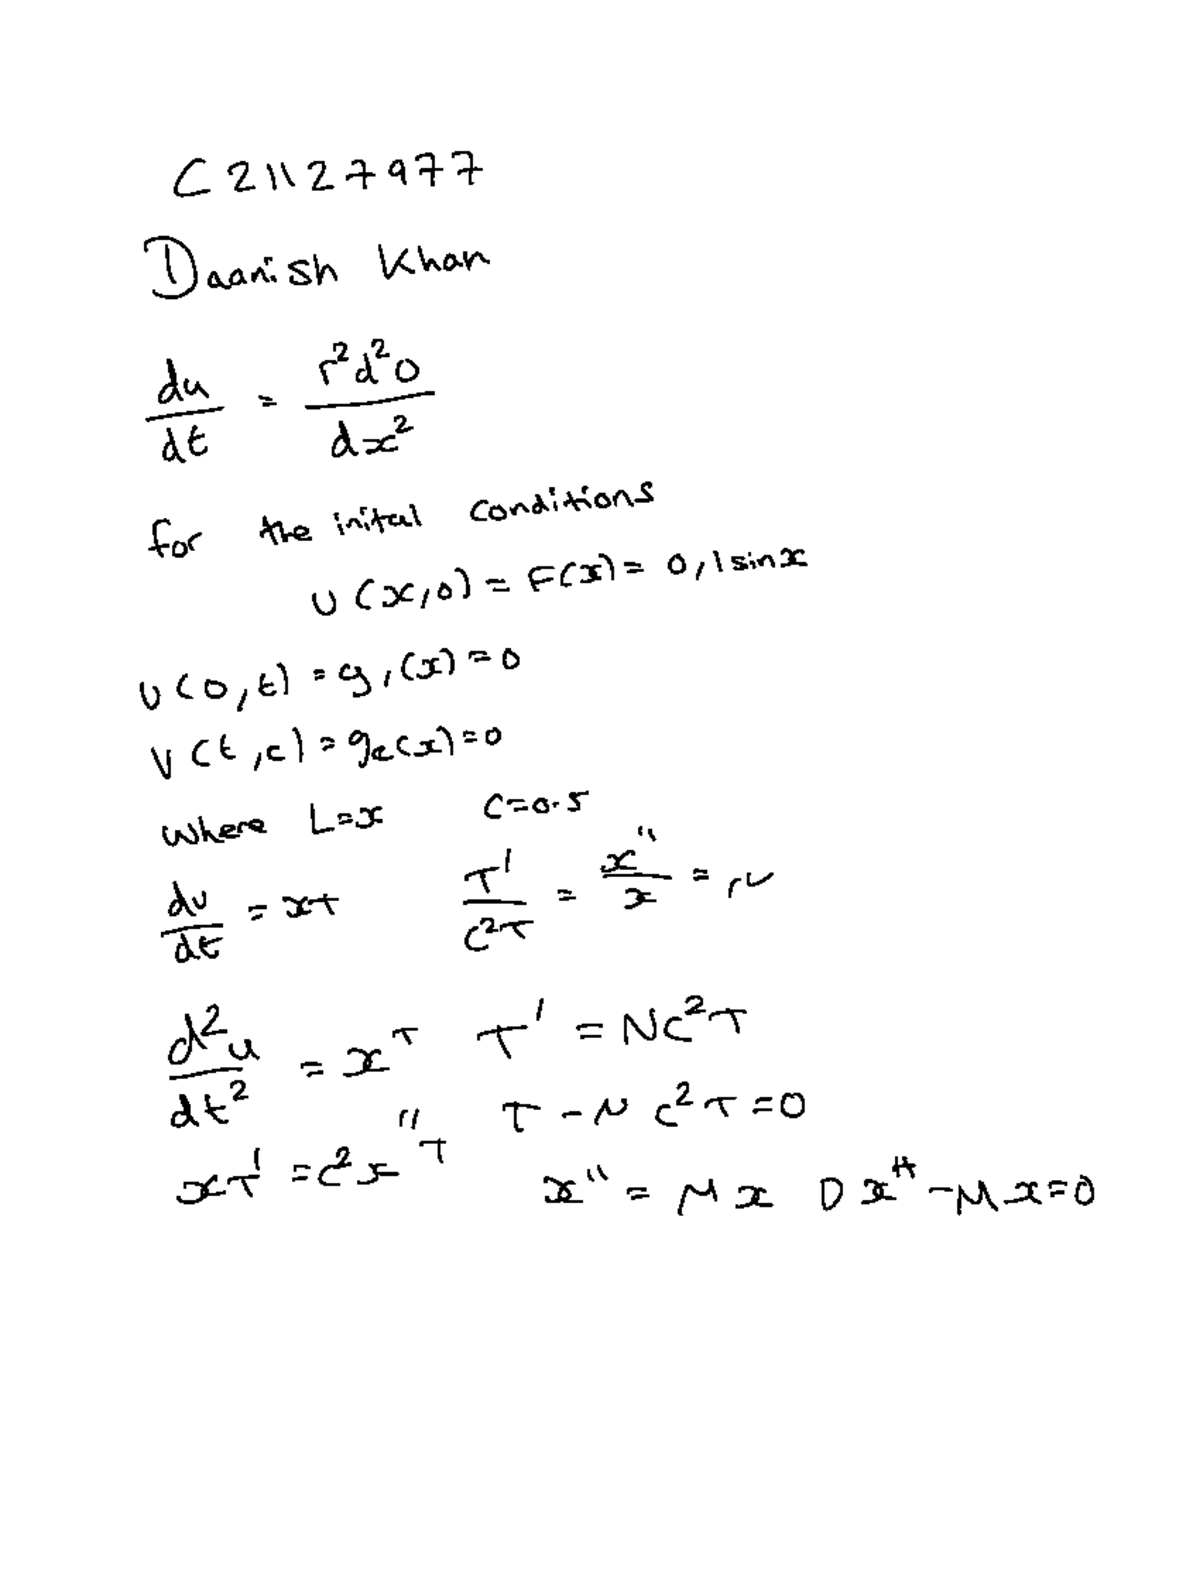 C21127977
Daanish Khan
du/dt = r²d²0/dx²
for the inital conditions
U(x,0) = F(x) = 0,1sinx
U(0,t) = g,(x) = 0
V(t,c) = gc(x) = 0
where L=x C=0.5
du/dt = xT T'/C²T = x''/x = μ
d²u/dt² = x^T T' = NC²T
T - N C²T = 0
xT' = C²x''T x'' = Mx D x'' - Mx = 0